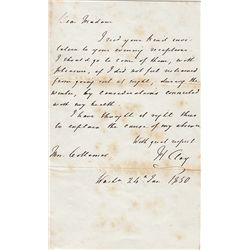 Dear Madam
I recd your kind invi-
tation to your evening receptions
I should go to some of them, with
pleasure, if I did not feel restrained
from going out at night, during the
winter, by considerations connected
with my health
I have thought it right thus
to explain the cause of my absence
With great respect
Mrs. Collamer H Clay
Washn 24th Jan 1850